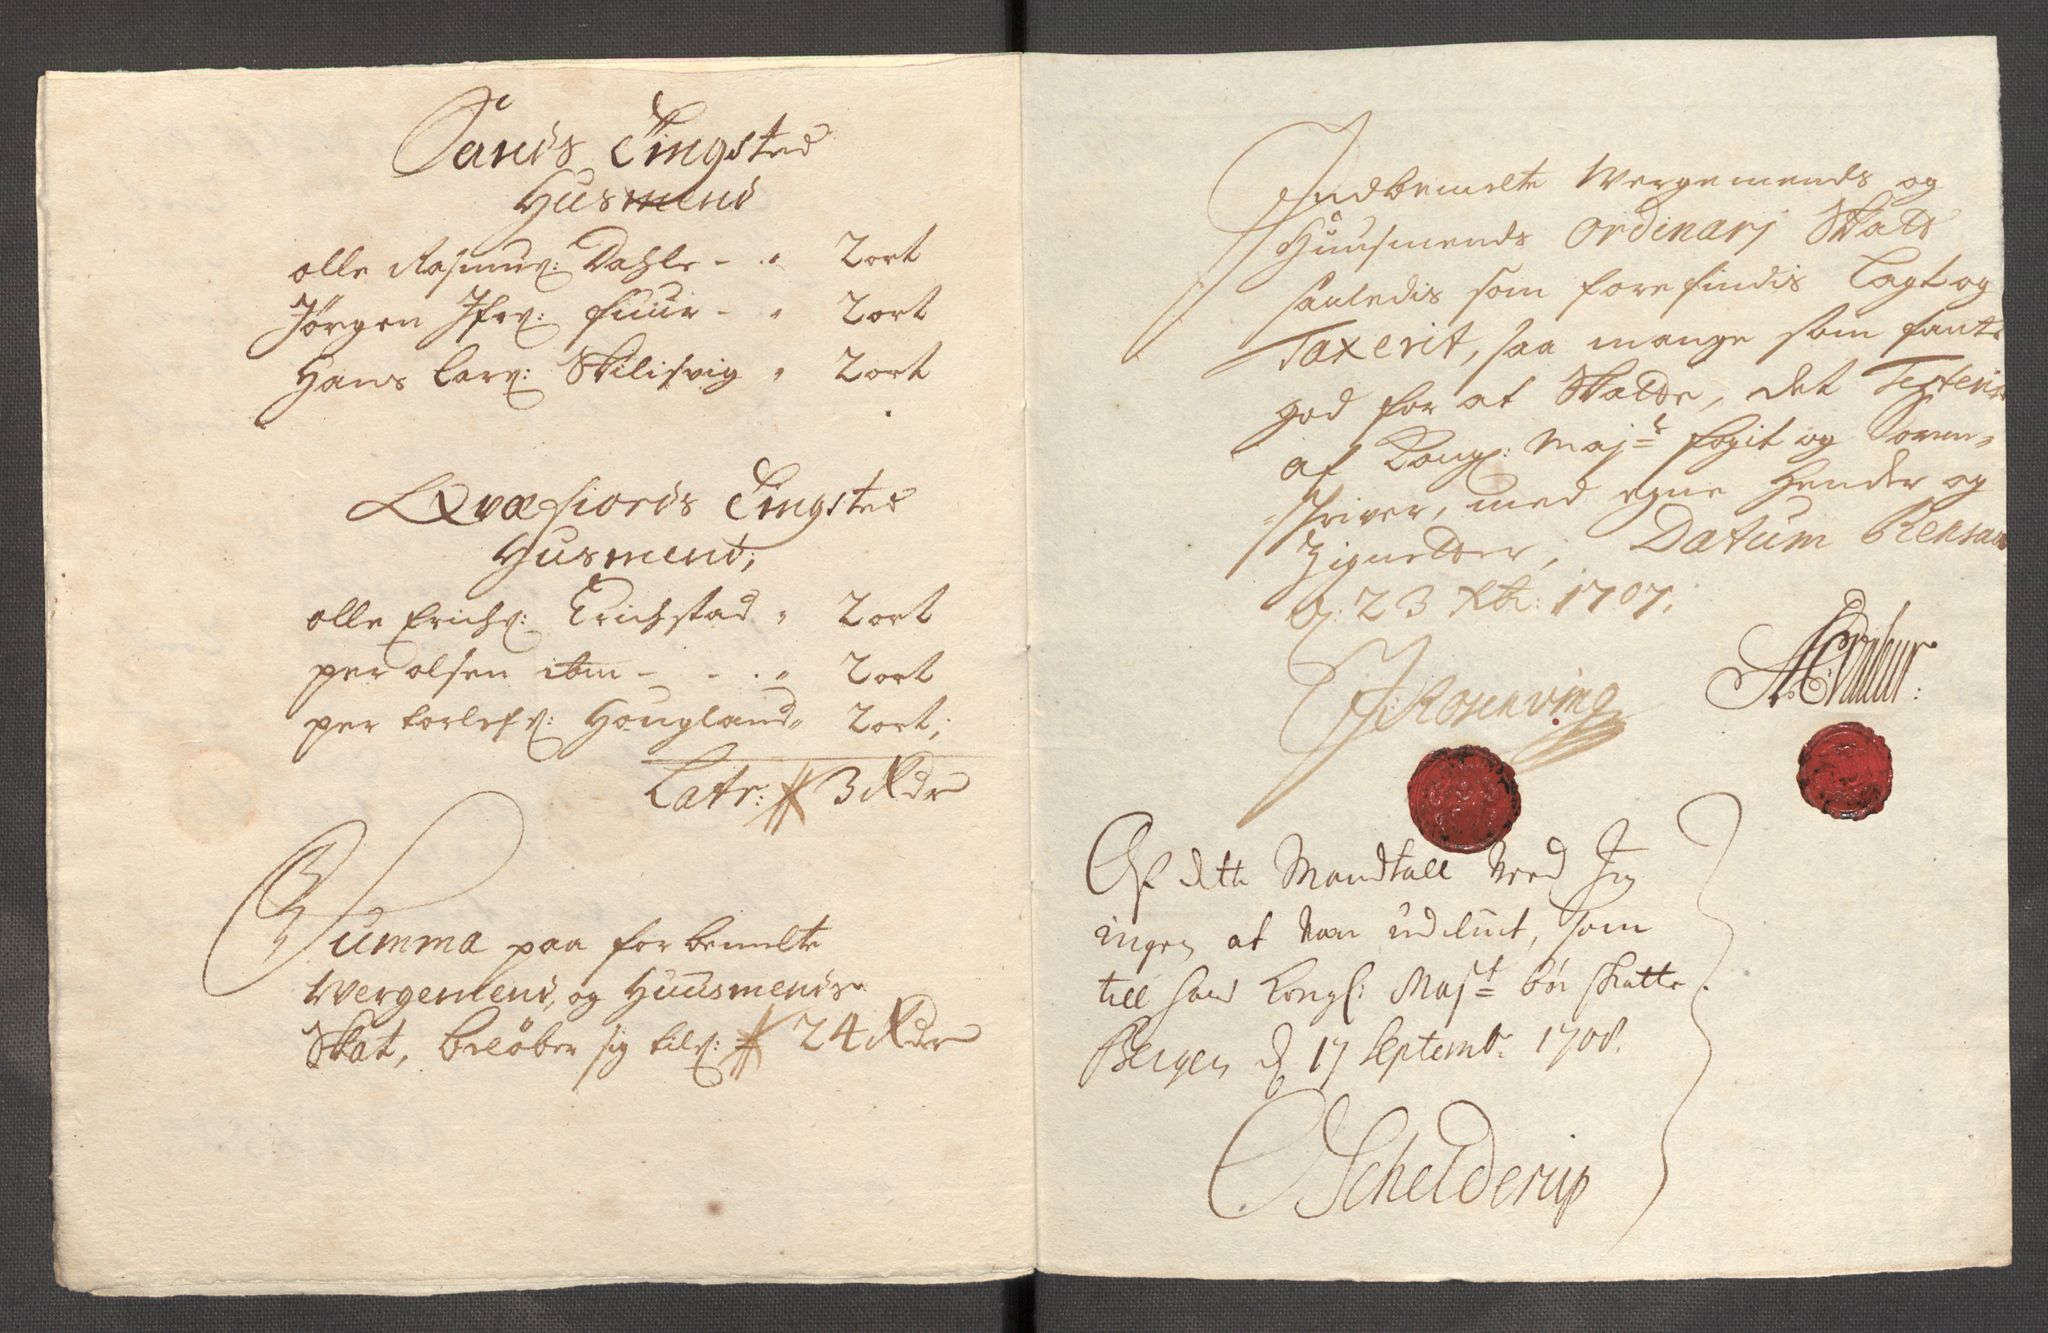 Sands Tingsted
Husmend
olle Rasmus: Dahle - " 2 ort
Jørgen Ifv: fuur - " 2 ort
Hans Larș: Skilisvig " 2 ort
Qvæfiords Tingsted
Husmend;
olle Erichs: Erichstad " 2 ort
per olsen ibm - - " 2 ort
per torlefs: Hougland " 2 ort;
Latr: 3 Rdr
Summa paa forbemelte
Wergemend, og Huusmends
Skat, beløber sig til: 24 Rdr
Indbemelte Wergemends og
Huusmends Ordinarj Skatt
saaledis som forefindis Lagt og
Taxerit, saa mange som fants
god for at Skatte, det Testerer
af Kong: Majts fogit og Soren-
-skriver, med egne Hender og
Zignetter, Datum
d: 23 Xbr: 1707.
J: Rosenving
Af dette Mandtall Veed Jeg
ingen at vær udeluct, som
till hans Kongl: Mayts bør skatte.
Bergen d 17 Septembr. 1708.
Schelderup